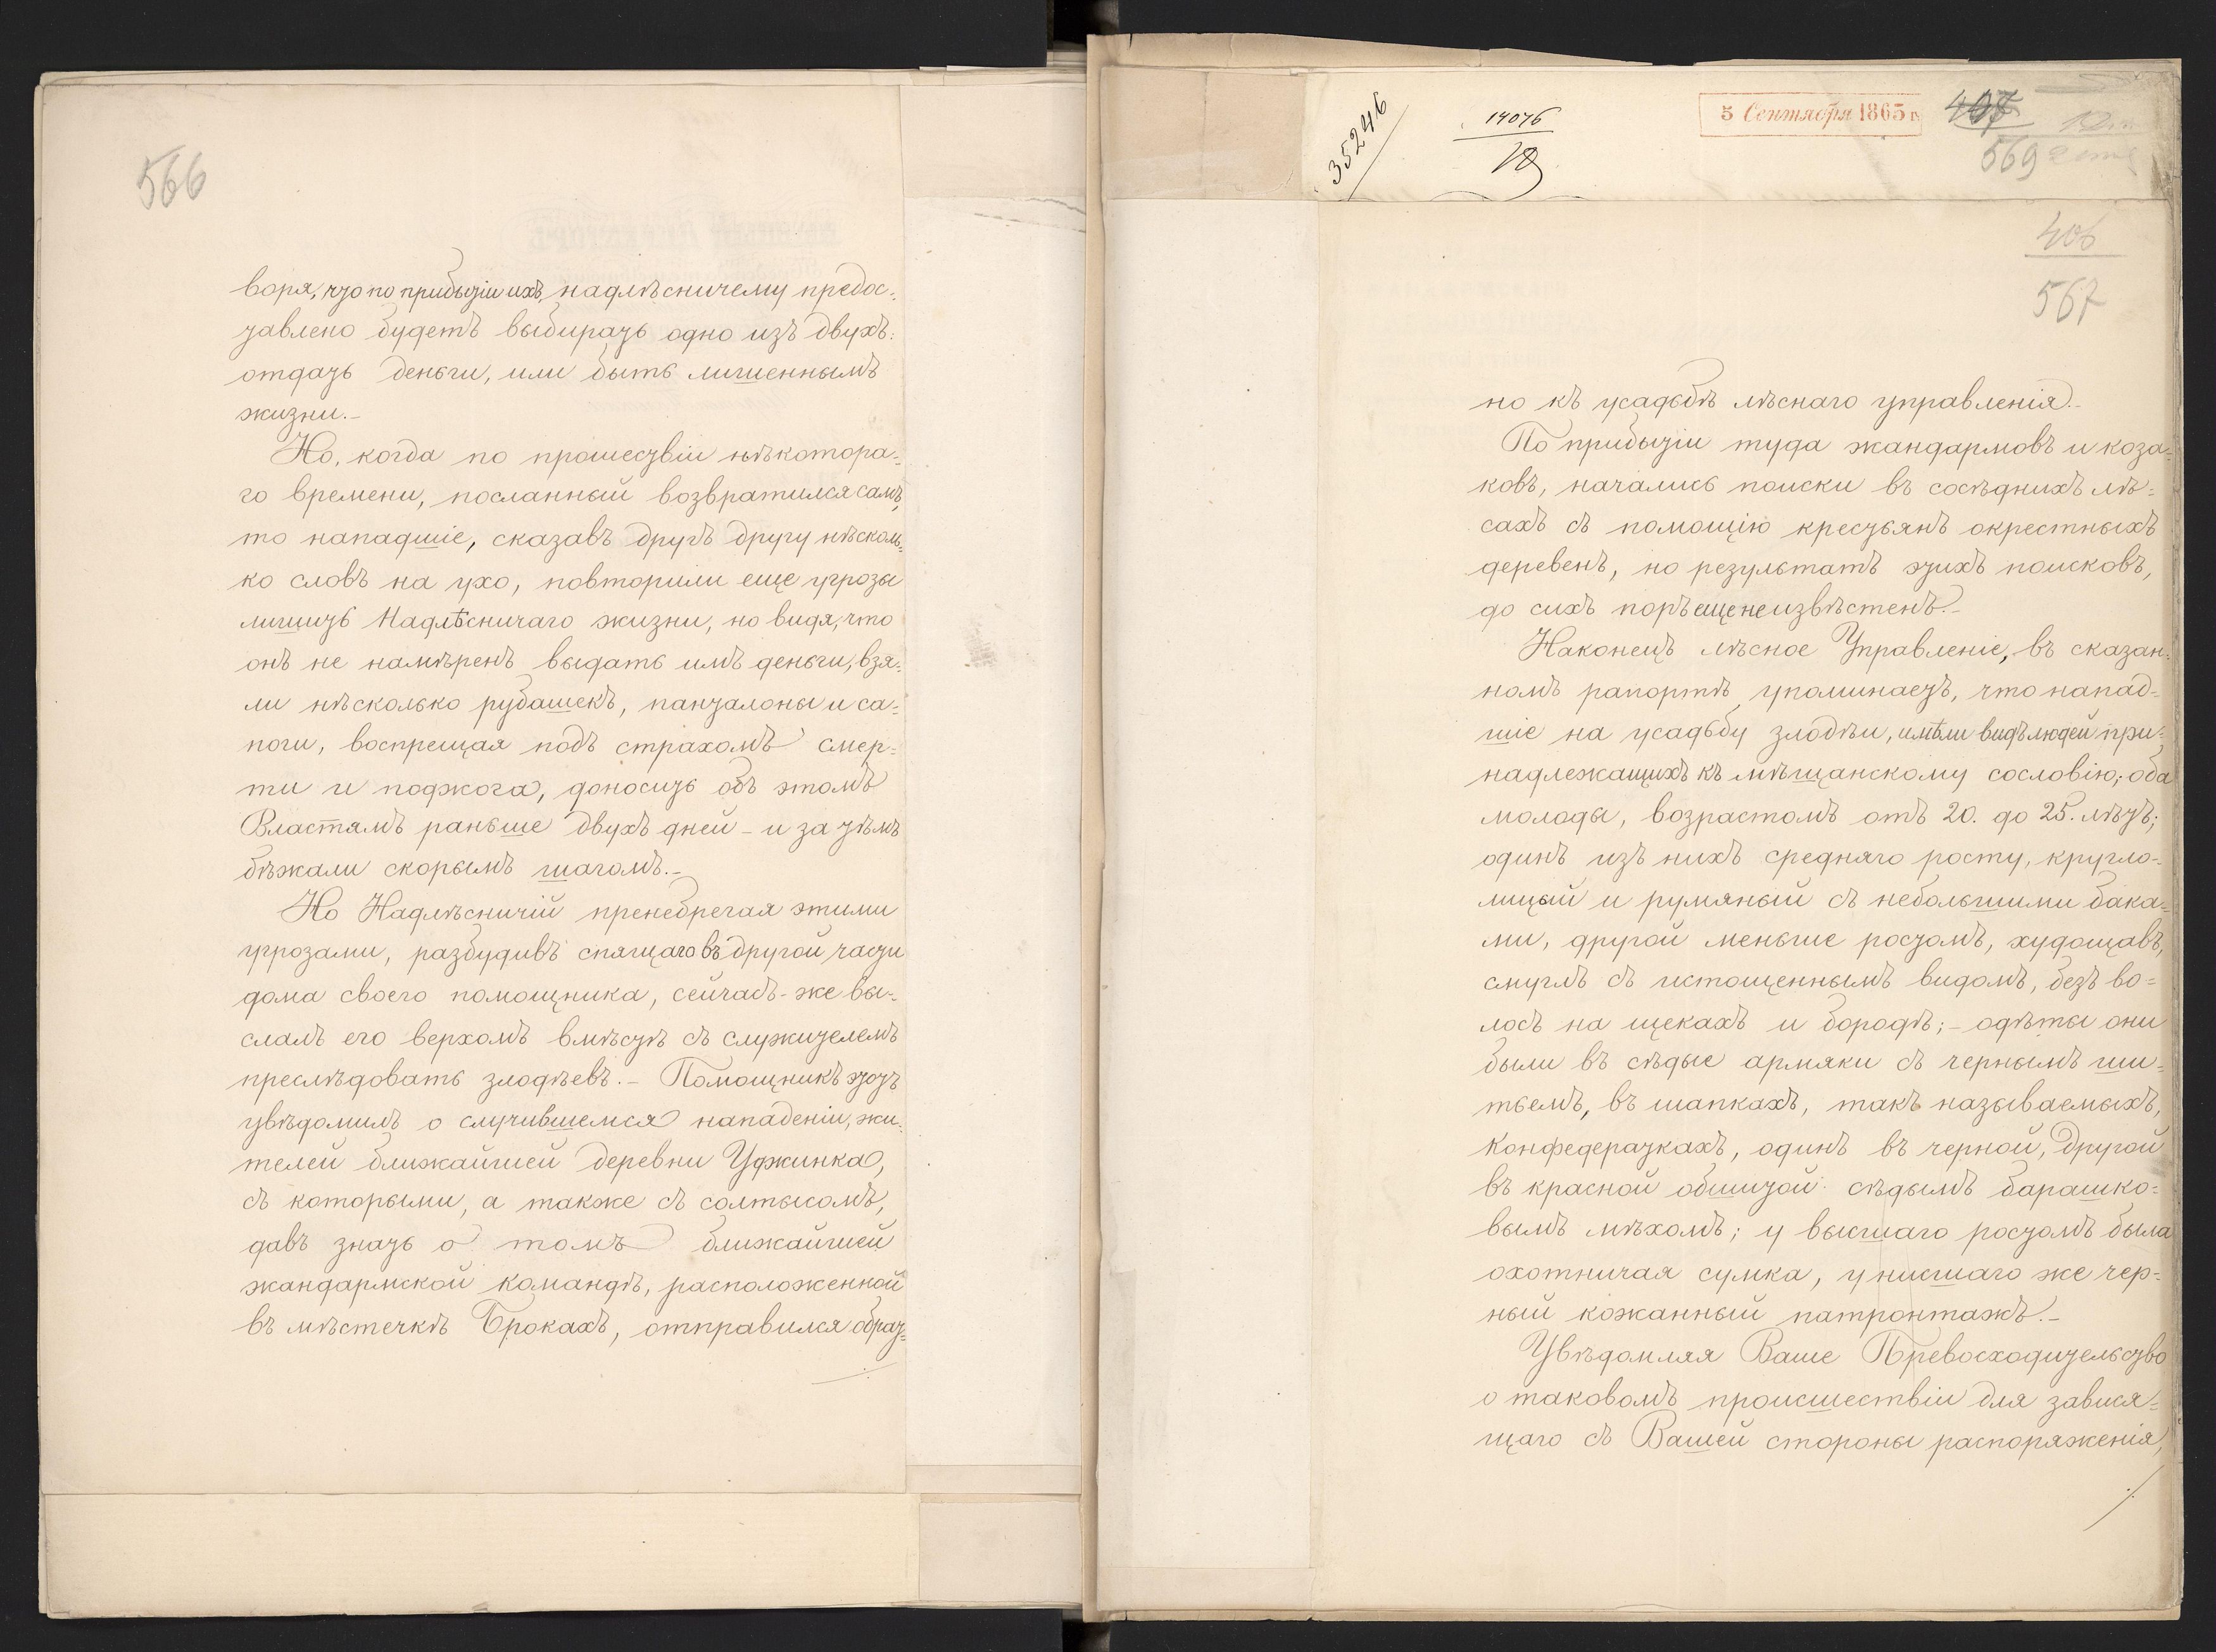 566
воря, что по прибытіи ихъ, надлѣсничему предос=
тавлено будетъ выбирать одно изъ двухъ:
отдать деньги, или быть лишеннымъ
жизни.-
Но, когда по прошествіи нѣкотора=
го времени, посланный возвратился самъ,
то нападшіе, сказавъ другъ другу нѣсколь=
ко словъ на ухо, повторили еще угрозы
лишить Надлѣсничаго жизни, но видя, что
онъ не намѣренъ выдать имъ деньги, взя=
ли нѣсколько рубашекъ, панталоны и са=
поги, воспрещая подъ страхомъ смер=
ти и поджога, доносить объ этомъ
Властямъ раньше двухъ дней - и за тѣмъ
бѣжали скорымъ шагомъ.-
Но Надлѣсничій пренебрегая этими
угрозами, разбудивъ спящаго въ другой части
дома своего помощника, сейчасъ-же вы=
слалъ его верхомъ вмѣстѣ съ служителемъ
преслѣдовать злодѣевъ.- Помощникъ этотъ
увѣдомилъ о случившемся нападеніи, жи=
телей ближайшей деревни Уджинка,
съ которыми, а также съ солтысомъ,
давъ знать о томъ ближайшей
жандармской командѣ, расположенной
въ мѣстечкѣ Брокахъ, отправился обрат=
35246
14076
18
5 Сентября 1865 г.
407
569
406
567
но къ усадьбѣ лѣснаго управленія.-
По прибытіи туда жандармовъ и коза=
ковъ, начались поиски въ сосѣднихъ лѣ=
сахъ съ помощію крестьянъ окрестныхъ
деревенъ, но результатъ этихъ поисковъ,
до сихъ поръ еще неизвѣстенъ.-
Наконецъ лѣсное Управленіе, въ сказан=
номъ рапортѣ упоминаетъ, что напад=
шіе на усадьбу злодѣи, имѣли видъ людей при=
надлежащихъ къ мѣщанскому сословію; оба
молоды, возрастомъ отъ 20. до 25. лѣтъ;
одинъ изъ нихъ средняго росту, кругло=
лицый и румяный съ небольшими бака=
ми, другой меньше ростомъ, худощавъ,
смуглъ съ истощеннымъ видомъ, безъ во=
лосъ на щекахъ и бородѣ; - одѣты они
были въ сѣдые армяки съ чернымъ ши=
тьемъ, въ шапкахъ, такъ называемыхъ,
конфедераткахъ, одинъ въ черной, другой
въ красной обшитой сѣдымъ барашко=
вымъ мѣхомъ; у высшаго ростомъ была
охотничая сумка, у нисшаго же чер=
ный кожанный патронташъ.-
Увѣдомляя Ваше Превосходительство
о таковомъ происшествіи для завися=
щаго съ Вашей стороны распоряженія,